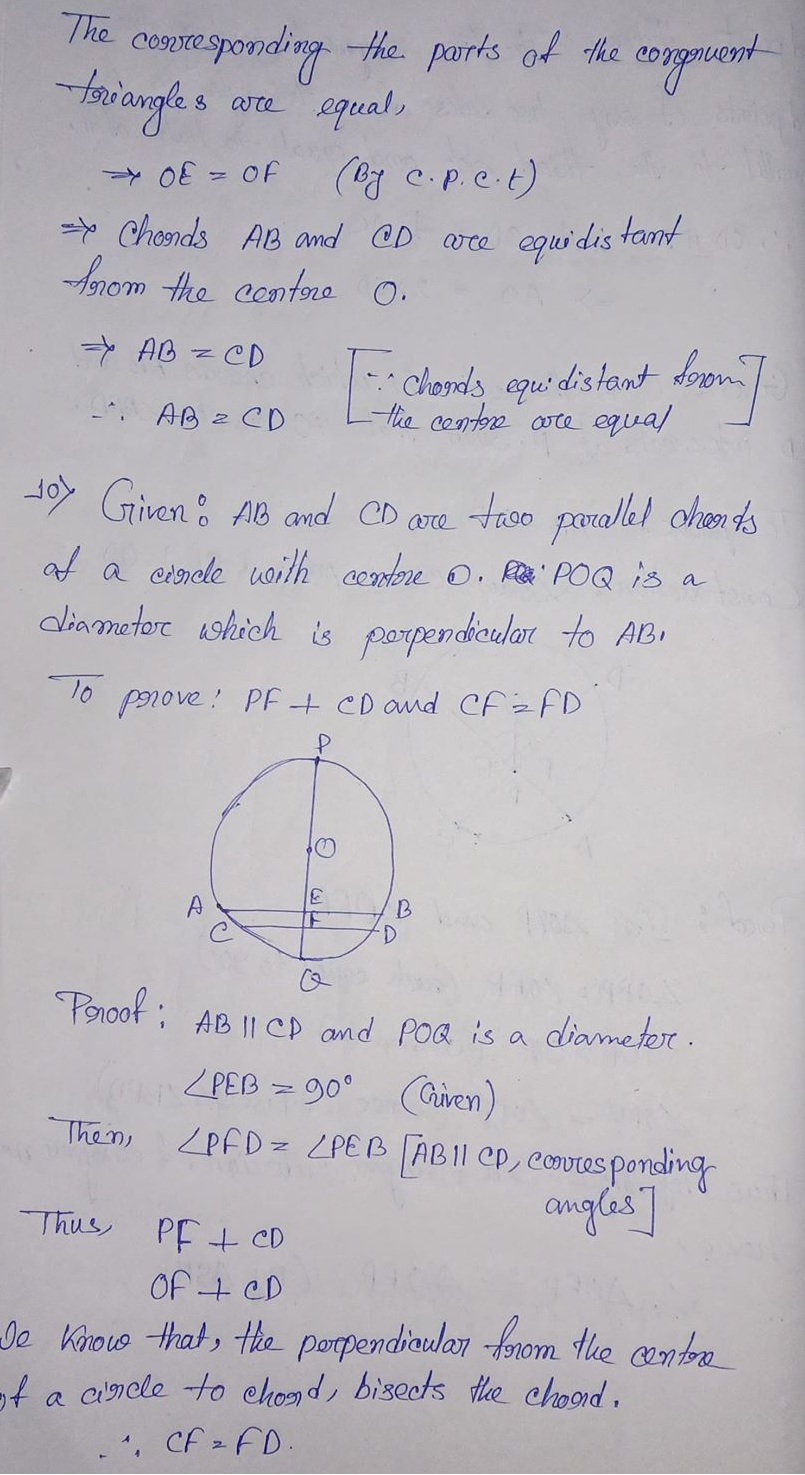 The corresponding the parts of the congruent
triangles are equal,
⇒ OE = OF (By c.p.c.t)
⇒ Chords AB and CD are equidistant
from the centre O.
⇒ AB = CD [∵ chords equidistant from
∴ AB = CD the centre are equal]
10) Given: AB and CD are two parallel chords
of a circle with centre O. POQ is a
diameter which is perpendicular to AB.
To prove: PF ⊥ CD and CF = FD
P
O
A E B
C F D
Q
Proof: AB || CD and POQ is a diameter.
∠PEB = 90° (Given)
Then, ∠PFD = ∠PEB [AB || CD, corresponding
angles]
Thus, PF ⊥ CD
OF ⊥ CD
We know that, the perpendicular from the centre
of a circle to chord, bisects the chord.
∴ CF = FD.